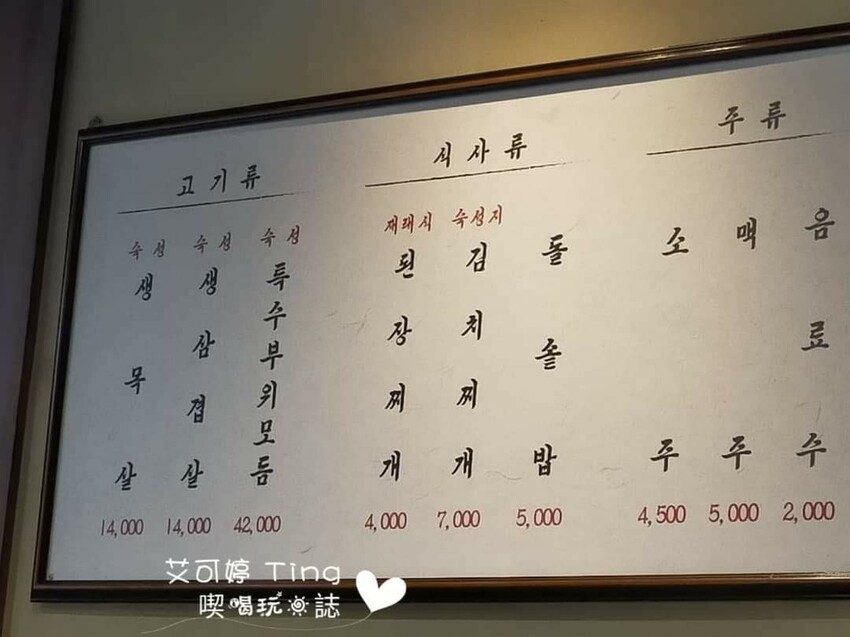 고기류
숙성 생목살 14,000
숙성 생삼겹살 14,000
숙성 특수부위모듬 42,000
식사류
재래식 된장찌개 4,000
숙성지 김치찌개 7,000
돌솥밥 5,000
주류
소주 4,500
맥주 5,000
음료수 2,000
艾可婷 Ting
喫喝玩樂誌